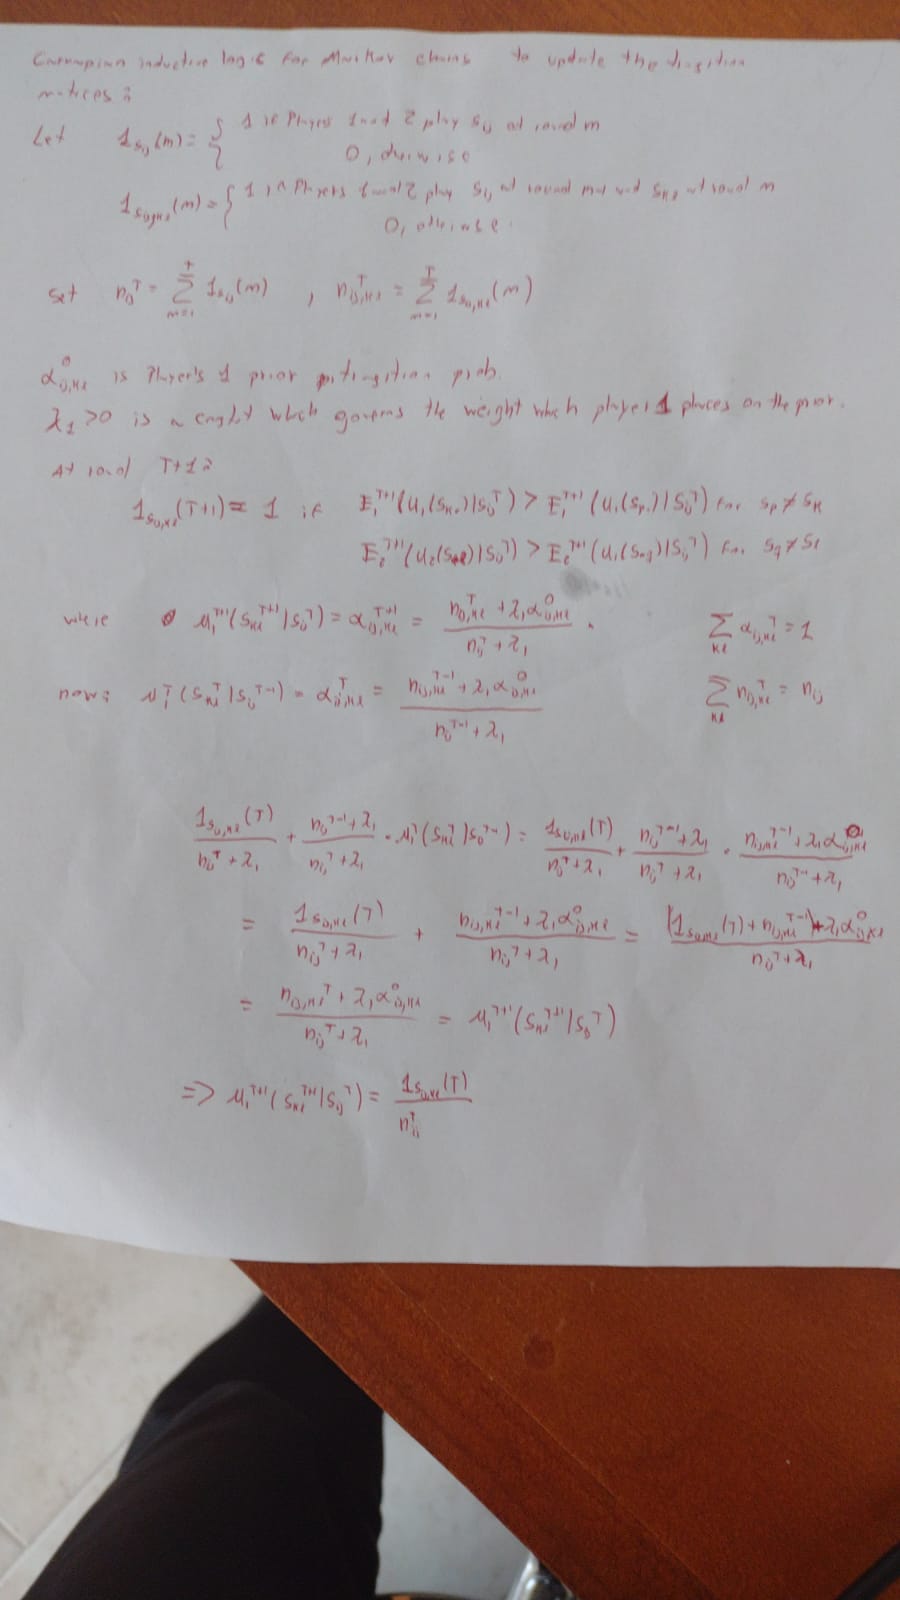 Carnapian inductive logic for Markov chains to update the transition
matrices:
Let 1_{S_{ij}}(m) = { 1 if Players 1 and 2 play S_{ij} at round m
0, otherwise
1_{S_{ij,kl}}(m) = { 1 if Players 1 and 2 play S_{ij} at round m-1 and S_{kl} at round m
0, otherwise.
Set n_{ij}^T = Σ_{m=1}^T 1_{S_{ij}}(m) , n_{ij,kl}^T = Σ_{m=1}^T 1_{S_{ij,kl}}(m)
α_{ij,kl}^0 is Player's 1 prior transition prob.
λ_1 > 0 is a which governs the weight which player 1 places on the prior.
At round T+1:
1_{S_{ij,kl}}(T+1) = 1 if E_1^{T+1}(U_1(S_{k.})|S_{ij}^T) > E_1^{T+1}(U_1(S_{p.})|S_{ij}^T) for S_p ≠ S_k
E_2^{T+1}(U_2(S_{.l})|S_{ij}^T) > E_2^{T+1}(U_1(S_{.q})|S_{ij}^T) for S_q ≠ S_l
where μ_1^{T+1}(S_{kl}^{T+1}|S_{ij}^T) = α_{ij,kl}^{T+1} = (n_{ij,kl}^T + λ_1 α_{ij,kl}^0) / (n_{ij}^T + λ_1) . Σ_{kl} α_{ij,kl}^T = 1
now: μ_1^T(S_{kl}^T|S_{ij}^{T-1}) = α_{ij,kl}^T = (n_{ij,kl}^{T-1} + λ_1 α_{ij,kl}^0) / (n_{ij}^{T-1} + λ_1) Σ_{kl} n_{ij,kl}^T = n_{ij}
1_{S_{ij,kl}}(T) / (n_{ij}^T + λ_1) + (n_{ij}^{T-1} + λ_1) / (n_{ij}^T + λ_1) · μ_1^T(S_{kl}^T|S_{ij}^{T-1}) = 1_{S_{ij,kl}}(T) / (n_{ij}^T + λ_1) + (n_{ij}^{T-1} + λ_1) / (n_{ij}^T + λ_1) · (n_{ij,kl}^{T-1} + λ_1 α_{ij,kl}^0) / (n_{ij}^{T-1} + λ_1)
= 1_{S_{ij,kl}}(T) / (n_{ij}^T + λ_1) + (n_{ij,kl}^{T-1} + λ_1 α_{ij,kl}^0) / (n_{ij}^T + λ_1) = ((1_{S_{ij,kl}}(T) + n_{ij,kl}^{T-1}) + λ_1 α_{ij,kl}^0) / (n_{ij}^T + λ_1)
= (n_{ij,kl}^T + λ_1 α_{ij,kl}^0) / (n_{ij}^T + λ_1) = μ_1^{T+1}(S_{kl}^{T+1}|S_{ij}^T)
=> μ_1^{T+1}(S_{kl}^{T+1}|S_{ij}^T) = 1_{S_{ij,kl}}(T) / n_{ij}^T